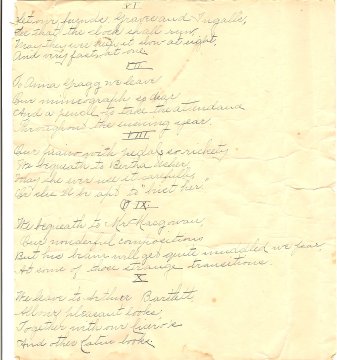 VI
Let our friends Grace and
See that the clock shall run,
Pray they we have it slow at eight,
And very fast, at one.
VII
To Anna Gragg we leave
Our mimeograph so dear
And a pencil to take the attendance
Throughout the ensuing year.
VIII
Our piano with pedals so rickety
We bequeath to Bertha
she ever use it carefully
Or else it is apt to "bust her."
IX
We bequeath to Mr. Masgowan
Our wonderful compositions
But his brain will get quite muddled we fear
At some of those strange transitions.
X
We leave to Arthur Bartlett,
All our pleasant looks,
Together with our
And other Latin books.